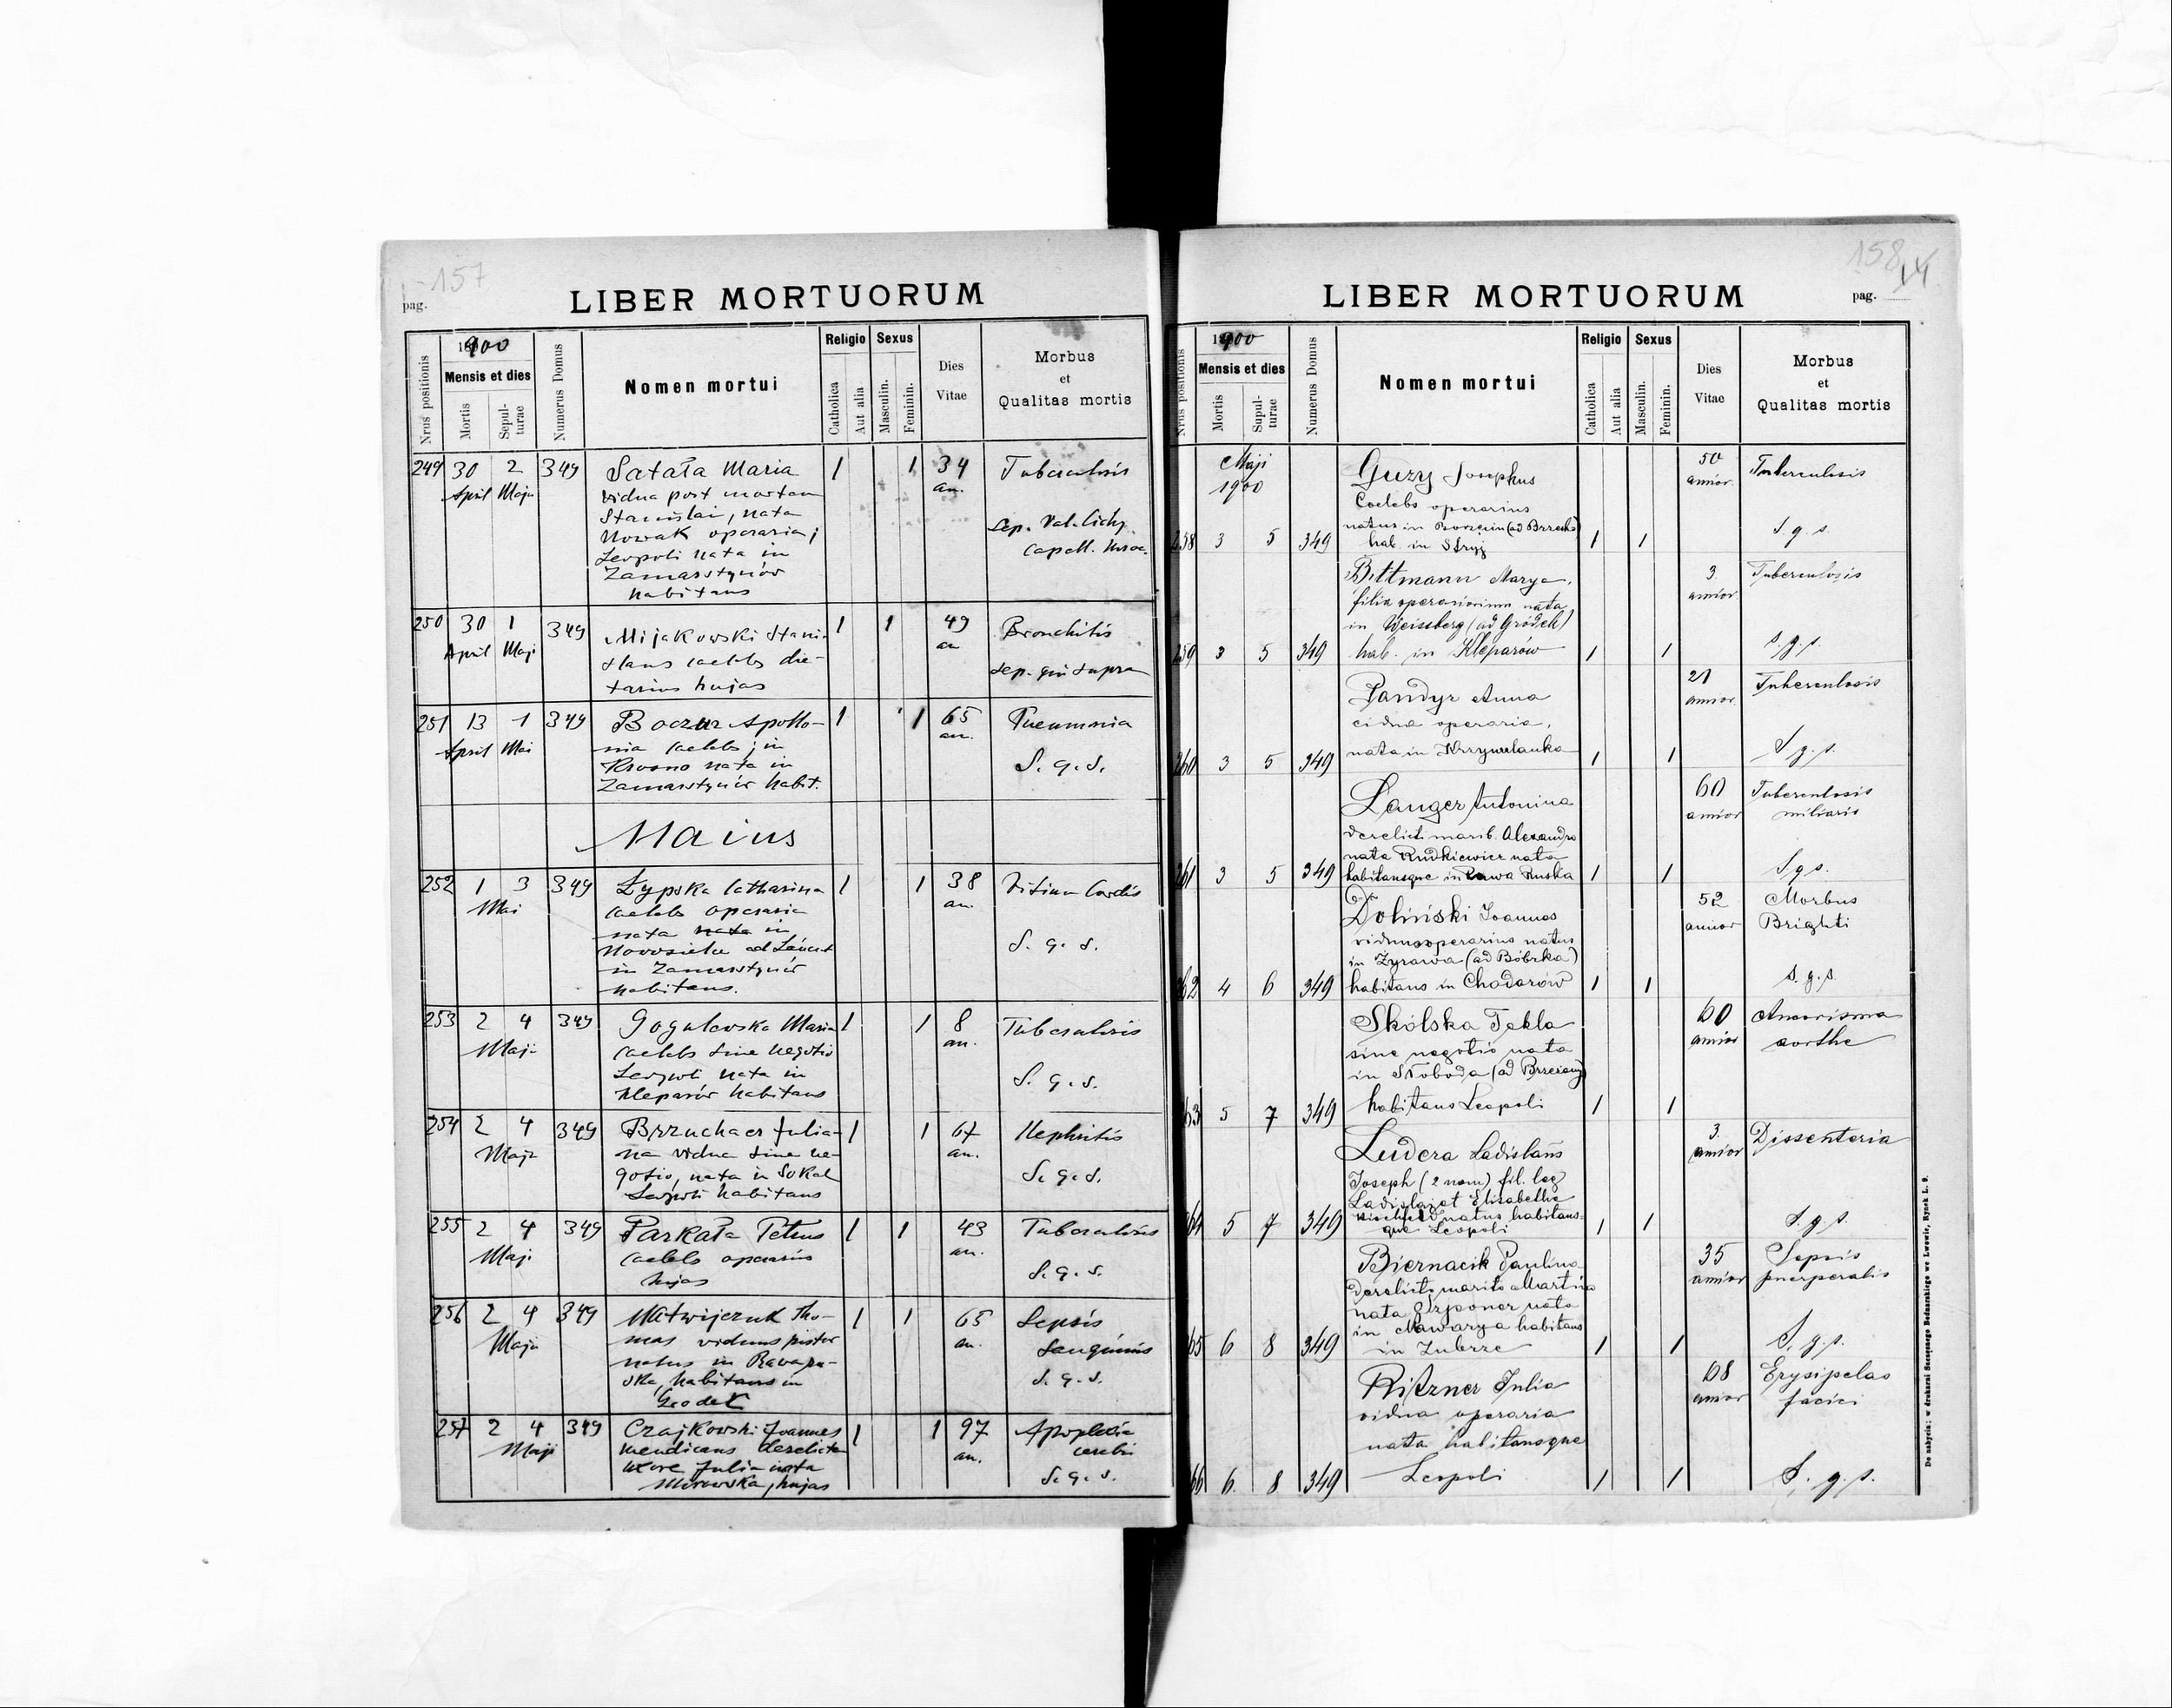 157
pag.
LIBER MORTUORUM
Nrus positionis
1900
Mensis et dies
Mortis
Sepulturae
Numerus Domus
Nomen mortui
Religio
Catholica
Aut alia
Sexus
Masculin.
Feminin.
Dies Vitae
Morbus
et
Qualitas mortis
249 30 2 349 Satała Maria 1 1 34 Tuberculosis
April Maji vidua post mortem an.
Stanislai, nata Sep. Val. Lichy
Nowak operaria; Capell.
Leopoli nata in
Zamarstynów
habitans
250 30 1 349 Mijakowski Stani- 1 1 49 Bronchitis
April Maji slaus caelebs die- an Sep. qui supra
tarius hujas
251 13 1 349 Boczar Apollo- 1 1 65 Pneumonia
April Mai nia caelebs; in an.
Krosno nata in S. q. s.
Zamarstynów habit.
Maius
252 1 3 349 Łypska Catharina 1 1 38 Vitium Cordis
Mai caelebs operaria an.
nata nata in S. q. s.
Nowosielce ad Łańcut
in Zamarstynów
habitans.
253 2 4 349 Gogulewska Maria 1 1 8 Tuberculosis
Maji caelebs sine negotio an.
Leopoli nata in S. q. s.
Kleparów habitans
254 2 4 349 Brzuchacz Julia- 1 1 67 Nephritis
Maji na vidua sine ne- an.
gotio, nata in Sokal S. q. s.
Leopoli habitans
255 2 4 349 Parkała Petrus 1 1 43 Tuberculosis
Maji caelebs operarius an.
hujas S. q. s.
256 2 4 349 Matwijczuk Tho- 1 1 65 Sepsis
Maji mas viduus pistor an. Sanguinis
natus in Rawa ru- S. q. s.
ska, habitans in
Grodek
257 2 4 349 Czajkowski Joannes 1 1 97 Apoplexia
Maji mendicans derelicta an. cerebri
uxore Julia nata S. q. s.
Mirowska, hujas
158
pag.
LIBER MORTUORUM
Nrus positionis
1900
Mensis et dies
Mortis
Supulturae
Numerus Domus
Nomen mortui
Religio
Catholica
Aut alia
Sexus
Masculin.
Feminin.
Dies Vitae
Morbus
et
Qualitas mortis
Maji Guzy Josephus 50 Tuberculosis
1900 Coelebs operarius annor.
natus in (ad Brzesko) S. q. s.
258 3 5 349 hab. in Stryj 1 1
Bittmann Marya, 3 Tuberculosis
filia operariorum nata annor.
in Weissberg (ad Gródek)
259 3 5 349 hab. in Kleparów 1 1 s. q. s.
Pandyr Anna 21 Tuberculosis
vidua operaria, annor.
260 3 5 349 nata in 1 1 S. q. s.
Langer Antonina 60 Tuberculosis
derelict. marit. Alexandro annor miliaris
nata Rudkiewicz nata
261 3 5 349 habitansque in Rawa Ruska 1 1 S q s.
Doliński Joannes 52 Morbus
viduus operarius natus annor Brighti
in Zyrawa (ad Bóbrka)
262 4 6 349 habitans in Chodorów 1 1 s. q. s.
Skólska Tekla 60 Aneurisma
sine negotio nata annor aorthe
in Słoboda (ad Brzeżany)
263 5 7 349 habitans Leopoli 1 1
Ludera Ladislaus 3. Dissenteria
Joseph (2 nom) fil. leg annor
Ladislai et Elisabethe
natus habitans-
264 5 7 349 que Leopoli 1 1 S. q s.
Biernacik Paulina 35 Sepsis
Derelicta marito Martino annor puerperalis
nata nata
in Nawarya habitans
265 6 8 349 in Zubrze 1 1 S. q. s.
Ritzner Julia 68 Erysipelas
vidua operaria annor faciei
nata habitansque
266 6 8 349 Leopoli 1 1 S. q. s.
Do nabycia: w drukarni Szczęsnego Bednarskiego we Lwowie, Rynek L. 9.